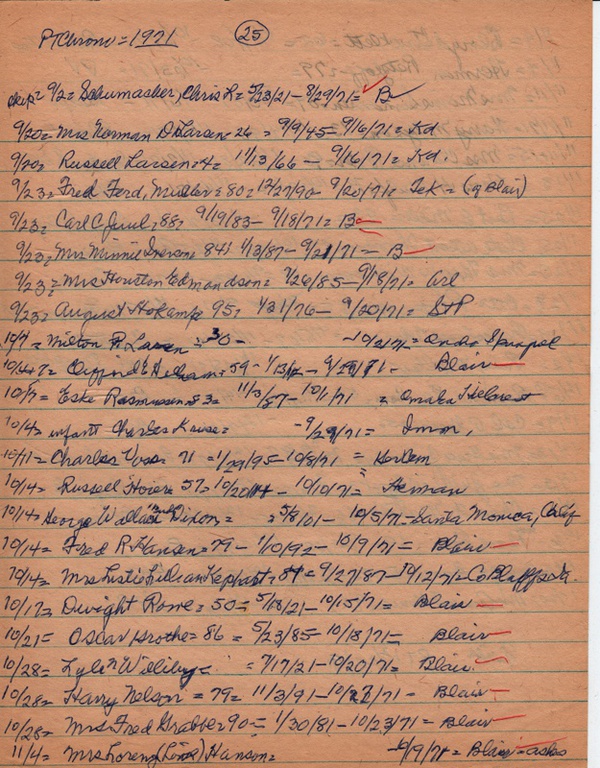 PTChrono = 1971 25
skip = 9/2 = Schumacher, Chris R = 5/23/21 - 8/29/71 = B
9/20 = Mrs Norman D Larsen = 26 = 9/9/45 - 9/16/71 = Kd
9/20 = Russell Larsen = 4 = 11/13/66 - 9/16/71 = Kd.
9/23 = Fred Ferd, = 80 = 12/27/90 - 9/20/71 = Tek = (of Blair)
9/23 = Carl C Juul = 88 = 9/19/83 - 9/18/71 = B
9/23 = Mrs Minnie Iverson 84 1/3/87 - 9/21/71 = B
9/23 = Mrs Houston Edmondson = 7/26/85 - 9/18/71 = Arl
9/23 = August Hokamp 95 = 1/31/76 - 9/20/71 = StP
10/7 = Milton R Larsen = 30 - - 10/2/71 =
10/4 = 7 = = 59 - - 9/29/71 = Blair
10/7 = Eske Rasmussen = 53 = 11/3/57 - 10/1/71 = Omaha Hillcrest
10/4 = infant Charles Kruse = - 9/29/71 =
10/11 = Charles Voss = 71 = 1/29/95 - 10/8/71 =
10/14 = Russell Hoier = 57 = - 10/10/71 = Herman
10/14 = George Wallace Dixon = = 5/8/01 - 10/5/71 = Santa Monica, Calif
10/14 = Fred R Hansen = 79 - 1/10/92 - 10/9/71 = Blair
10/14 = Mrs Lillian Kephart = 84 = 9/27/87 - 10/12/71 = Co Bluffs Ia.
10/17 = Dwight Rowe = 50 = 5/18/21 - 10/15/71 = Blair
10/21 = Oscar Grothe = 86 = 5/23/85 - 10/18/71 = Blair
10/28 = Lyle = 7/17/21 - 10/20/71 = Blair
10/28 = Harry Nelson = 79 = 11/3/91 - 10/22/71 = Blair
10/28 = Mrs Fred Grabber 90 = 1/30/81 - 10/23/71 = Blair
11/4 = Mrs Lorenz (Line) Hanson = 10/19/71 = Blair =